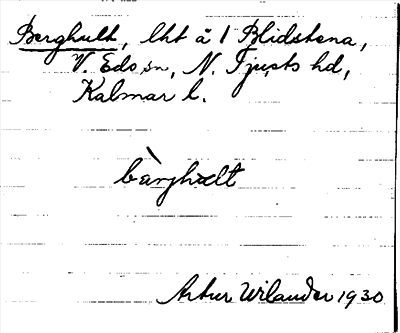 Berghult, lht å 1 Blidstena,
V. Eds sn, N. Tjusts hd,
Kalmar l.
bàrghult
Artur Wilander 1930